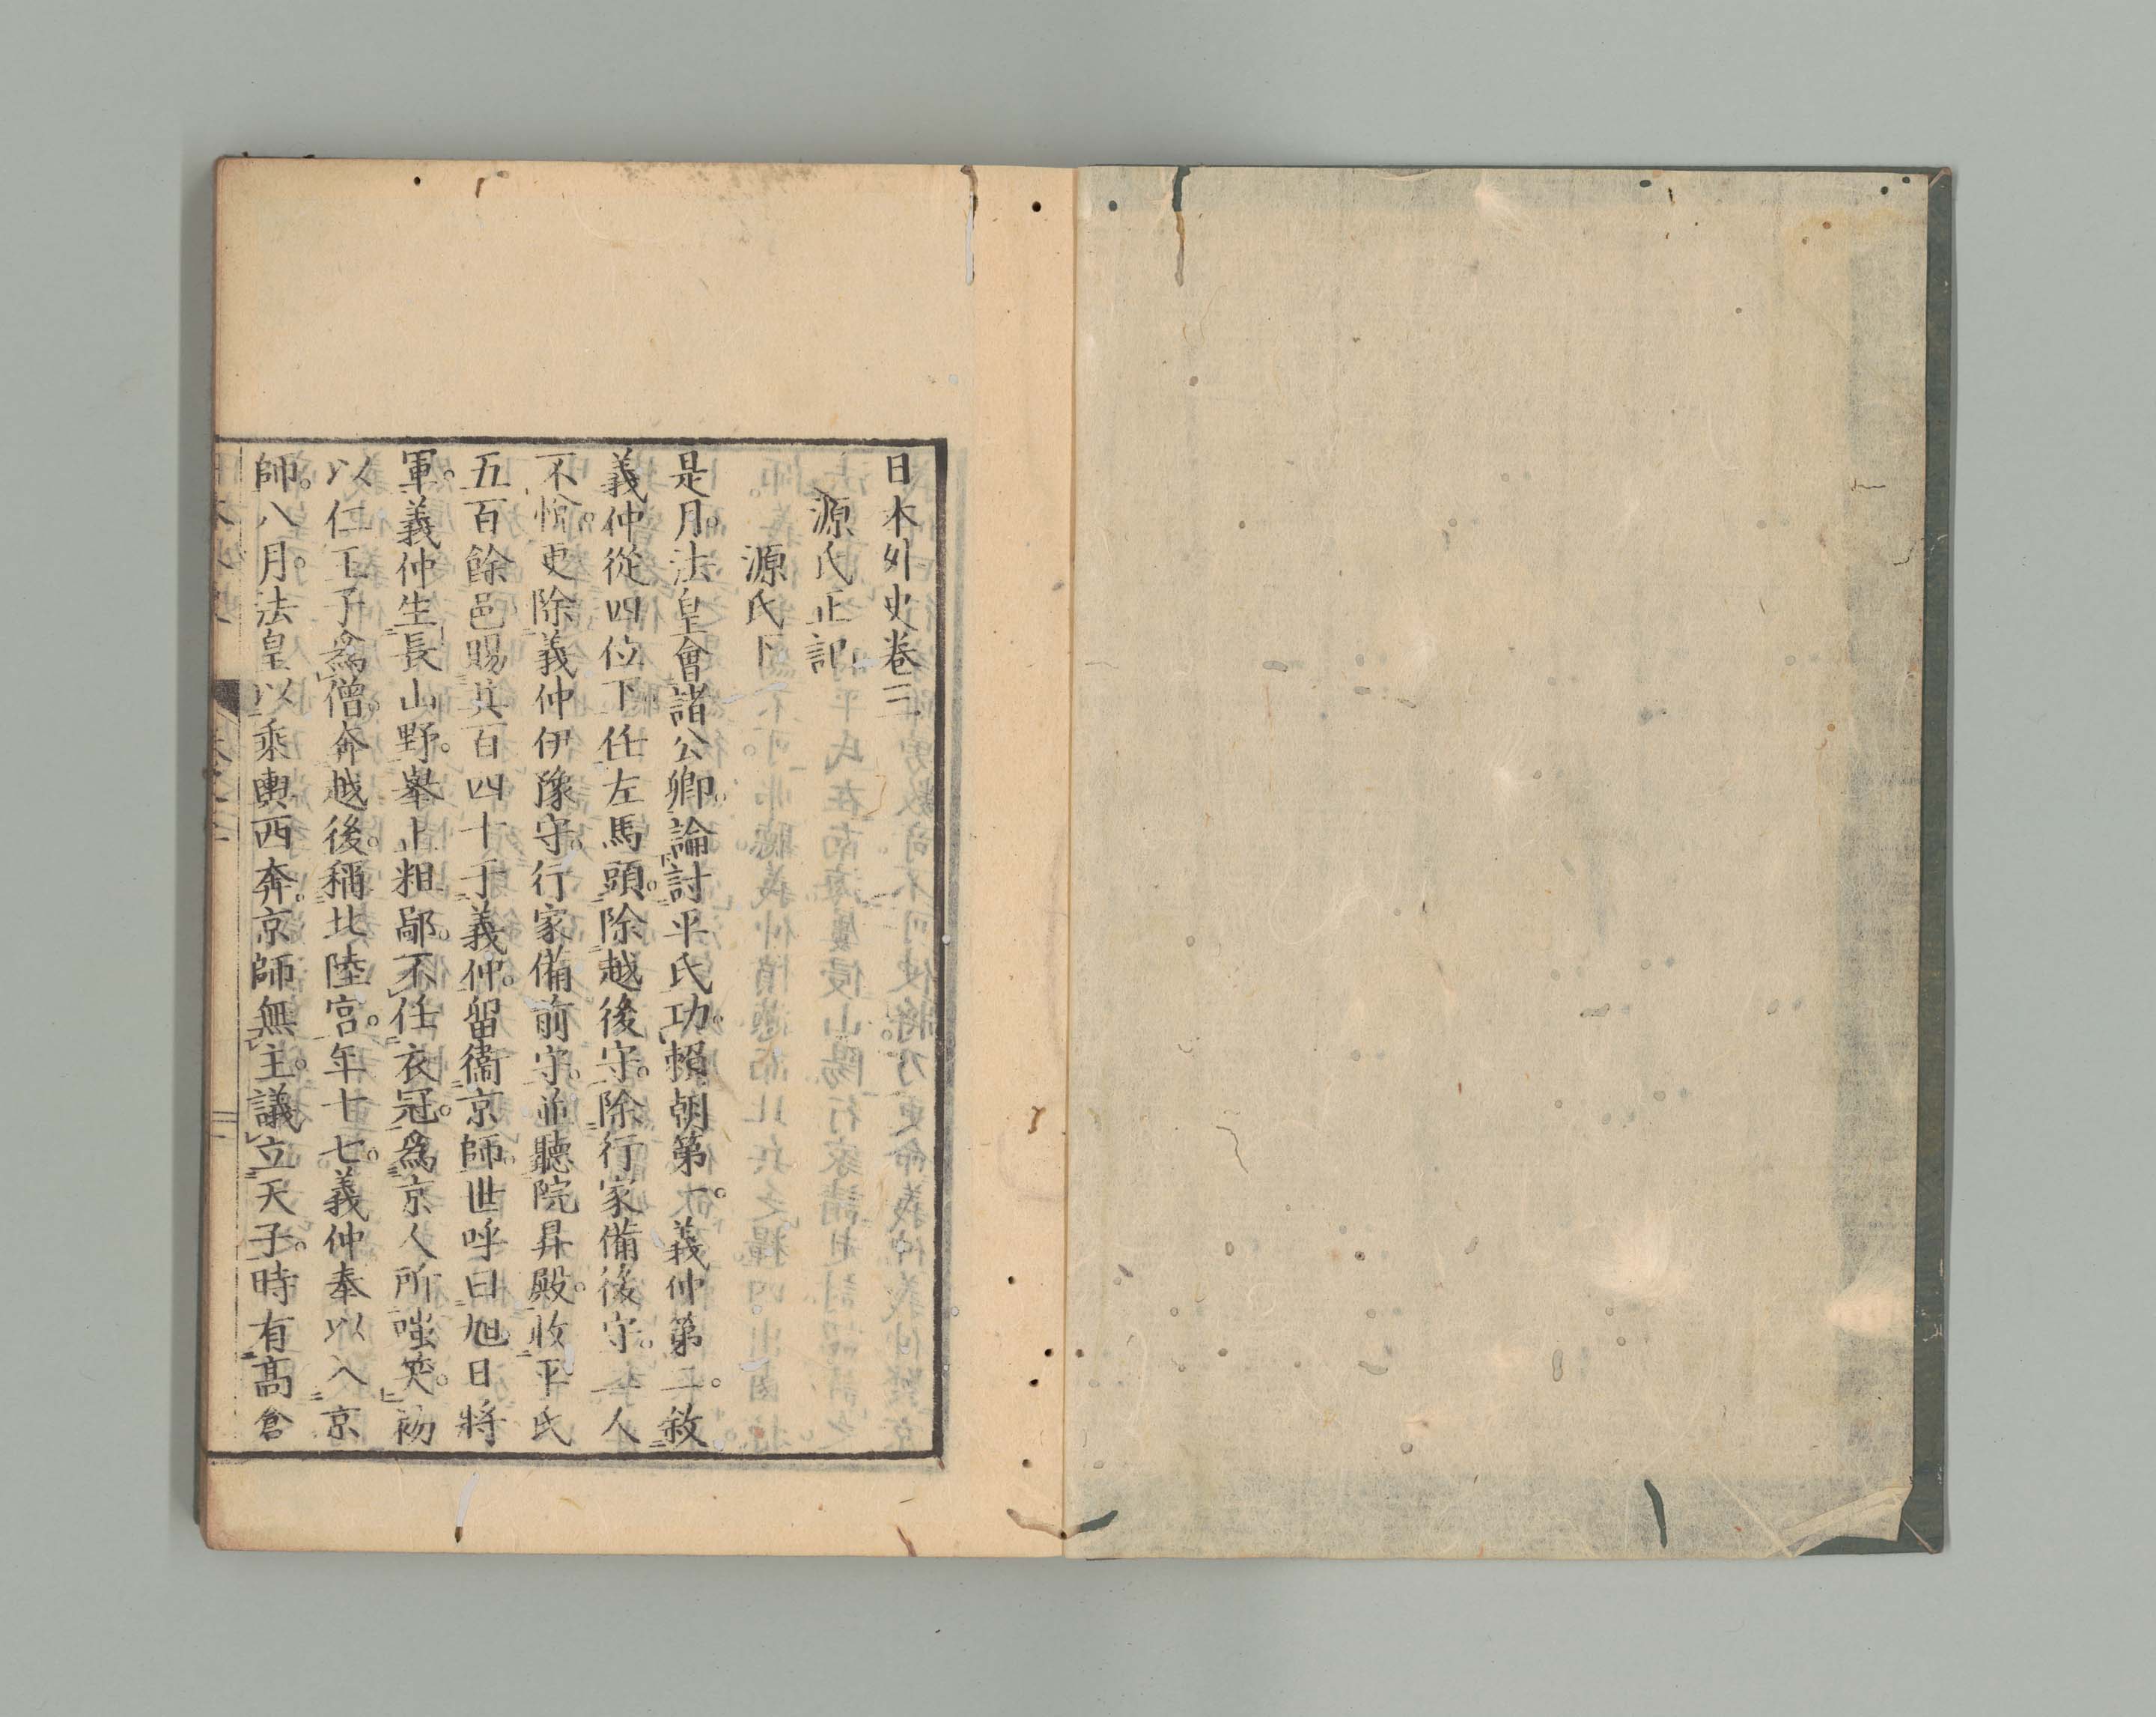 日本外史卷三
源氏正記
源氏下
是月。法皇會諸公卿。論討平氏功。賴朝第一。義仲第二。敘
義仲從四位下任左馬頭。除越後守。除行家備後守。二人
不悅。更除義仲伊豫守。行家備前守。並聽院昇殿。收平氏
五百餘邑賜其百四十于義仲。留衞京師。世呼曰旭日將
軍。義仲生長山野。擧止粗鄙。不任衣冠。爲京人所嗤笑。初
以仁王子爲僧。奔越後。稱北陸宮。年十七。義仲奉以入京
師。八月。法皇以乘輿西奔。京師無主。議立天子。時有高倉